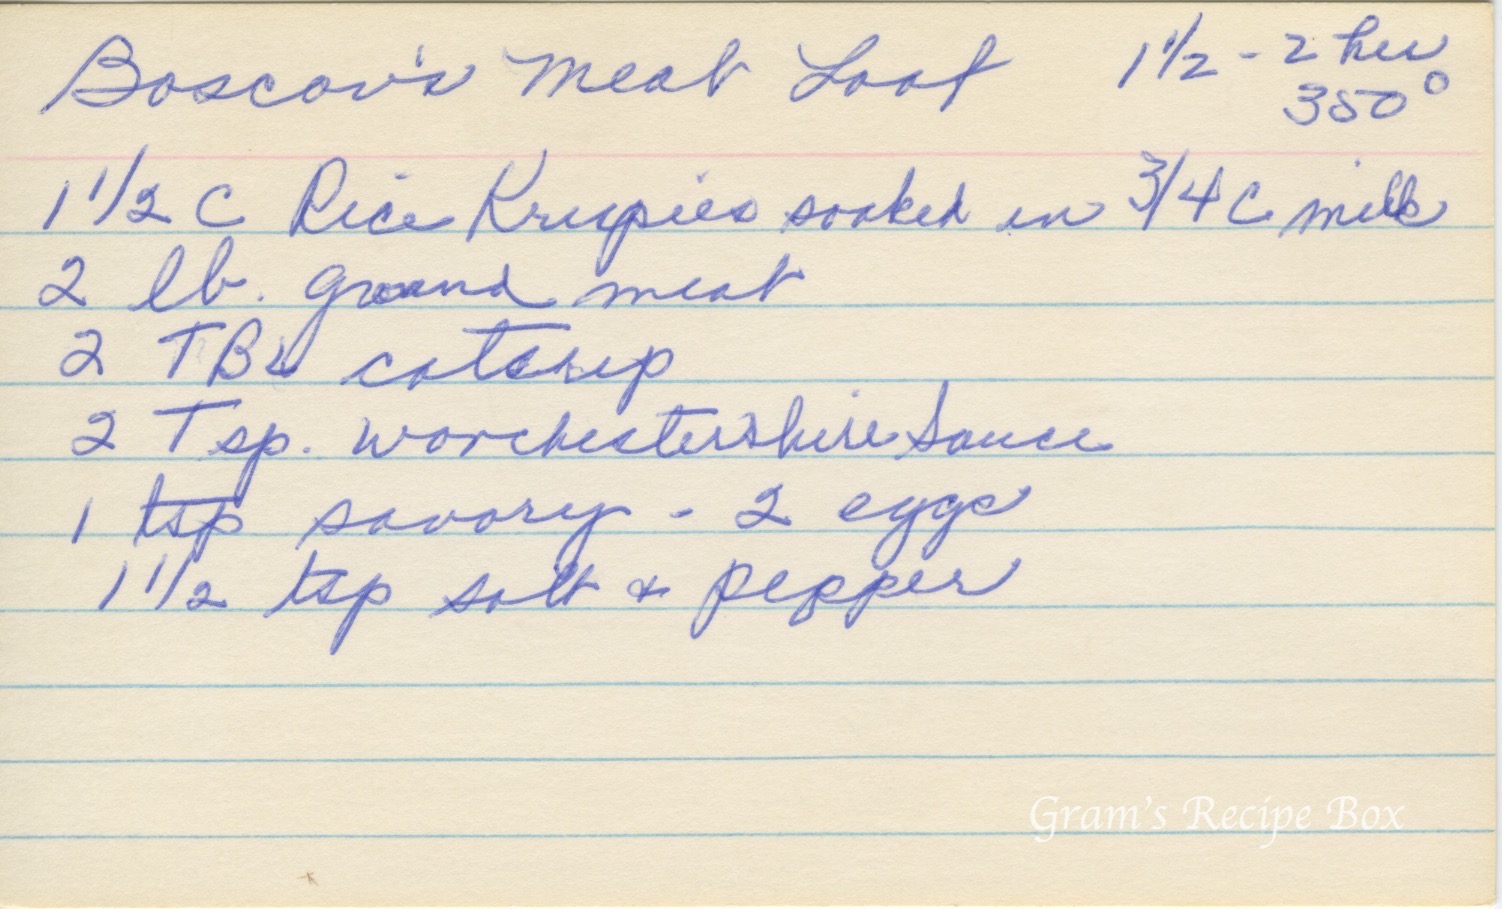 Boscov's Meat Loaf 1 1/2 - 2 hrs
350°
1 1/2 C Rice Krispies soaked in 3/4 C milk
2 lb. ground meat
2 TBs catsup
2 Tsp. worchestershire Sauce
1 tsp savory - 2 eggs
1 1/2 tsp salt & pepper
Gram's Recipe Box